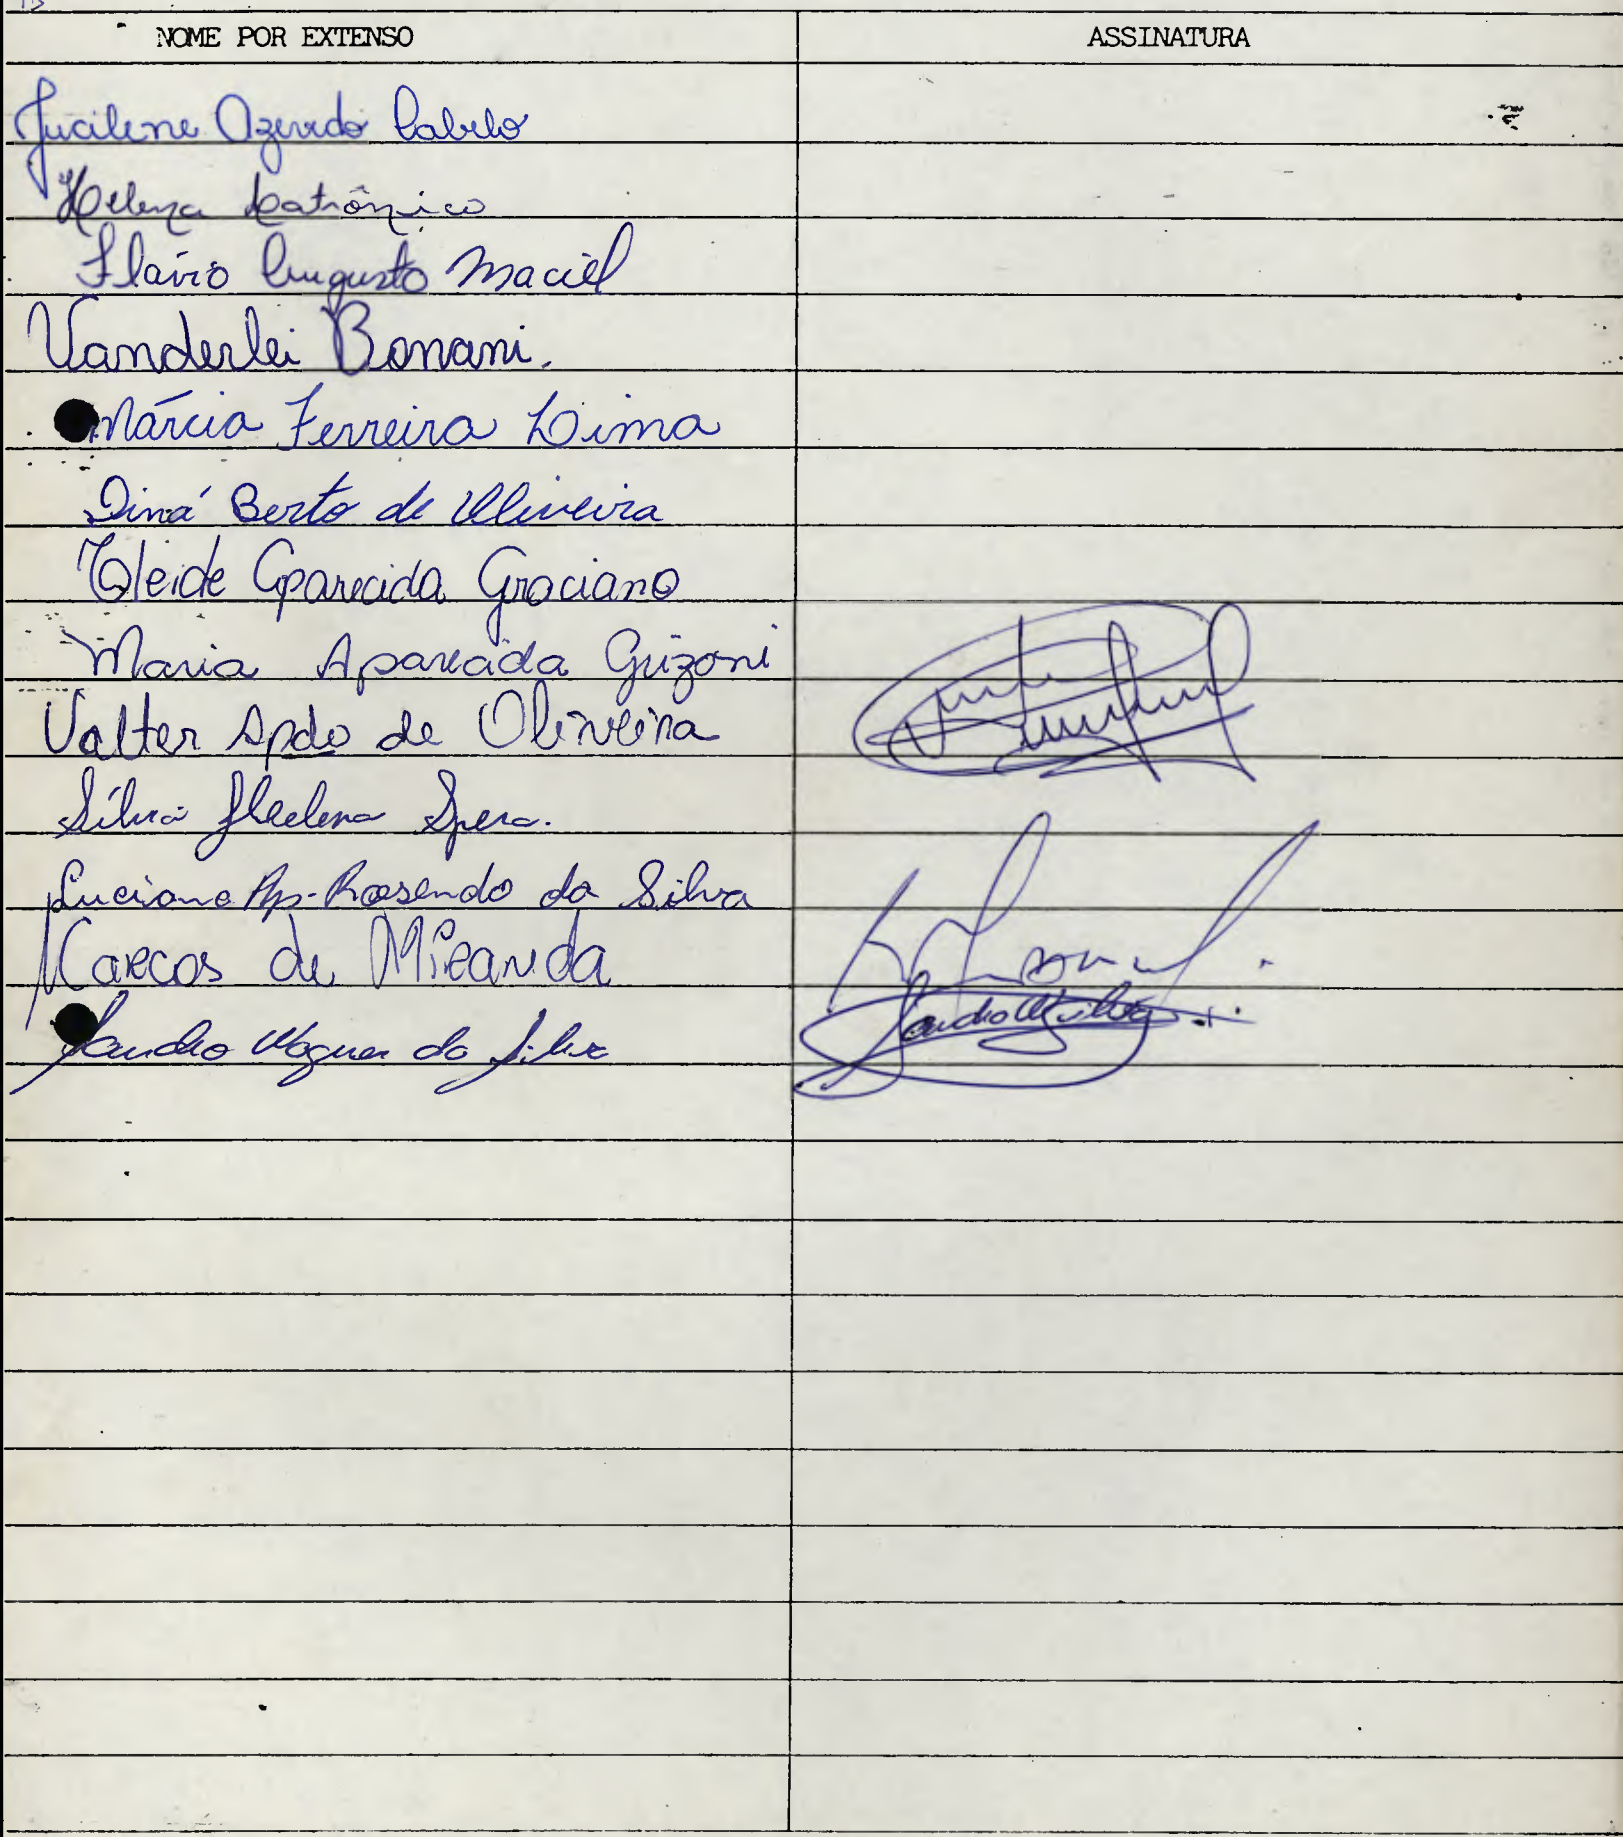 NOME POR EXTENSO ASSINATURA
Jucilene Azevedo Cabelo
Helena Catrônico
Flávio Augusto Maciel
Vanderlei Bonani.
Márcia Ferreira Lima
Diná Berto de Oliveira
Cleide Aparecida Graciano
Maria Aparecida Grizoni
Valter Apdo de Oliveira
Sílvia Helena Spera.
Luciana Ap. Rosendo da Silva
Marcos de Miranda
Sandro Wagner da Silva Sandro W Silva